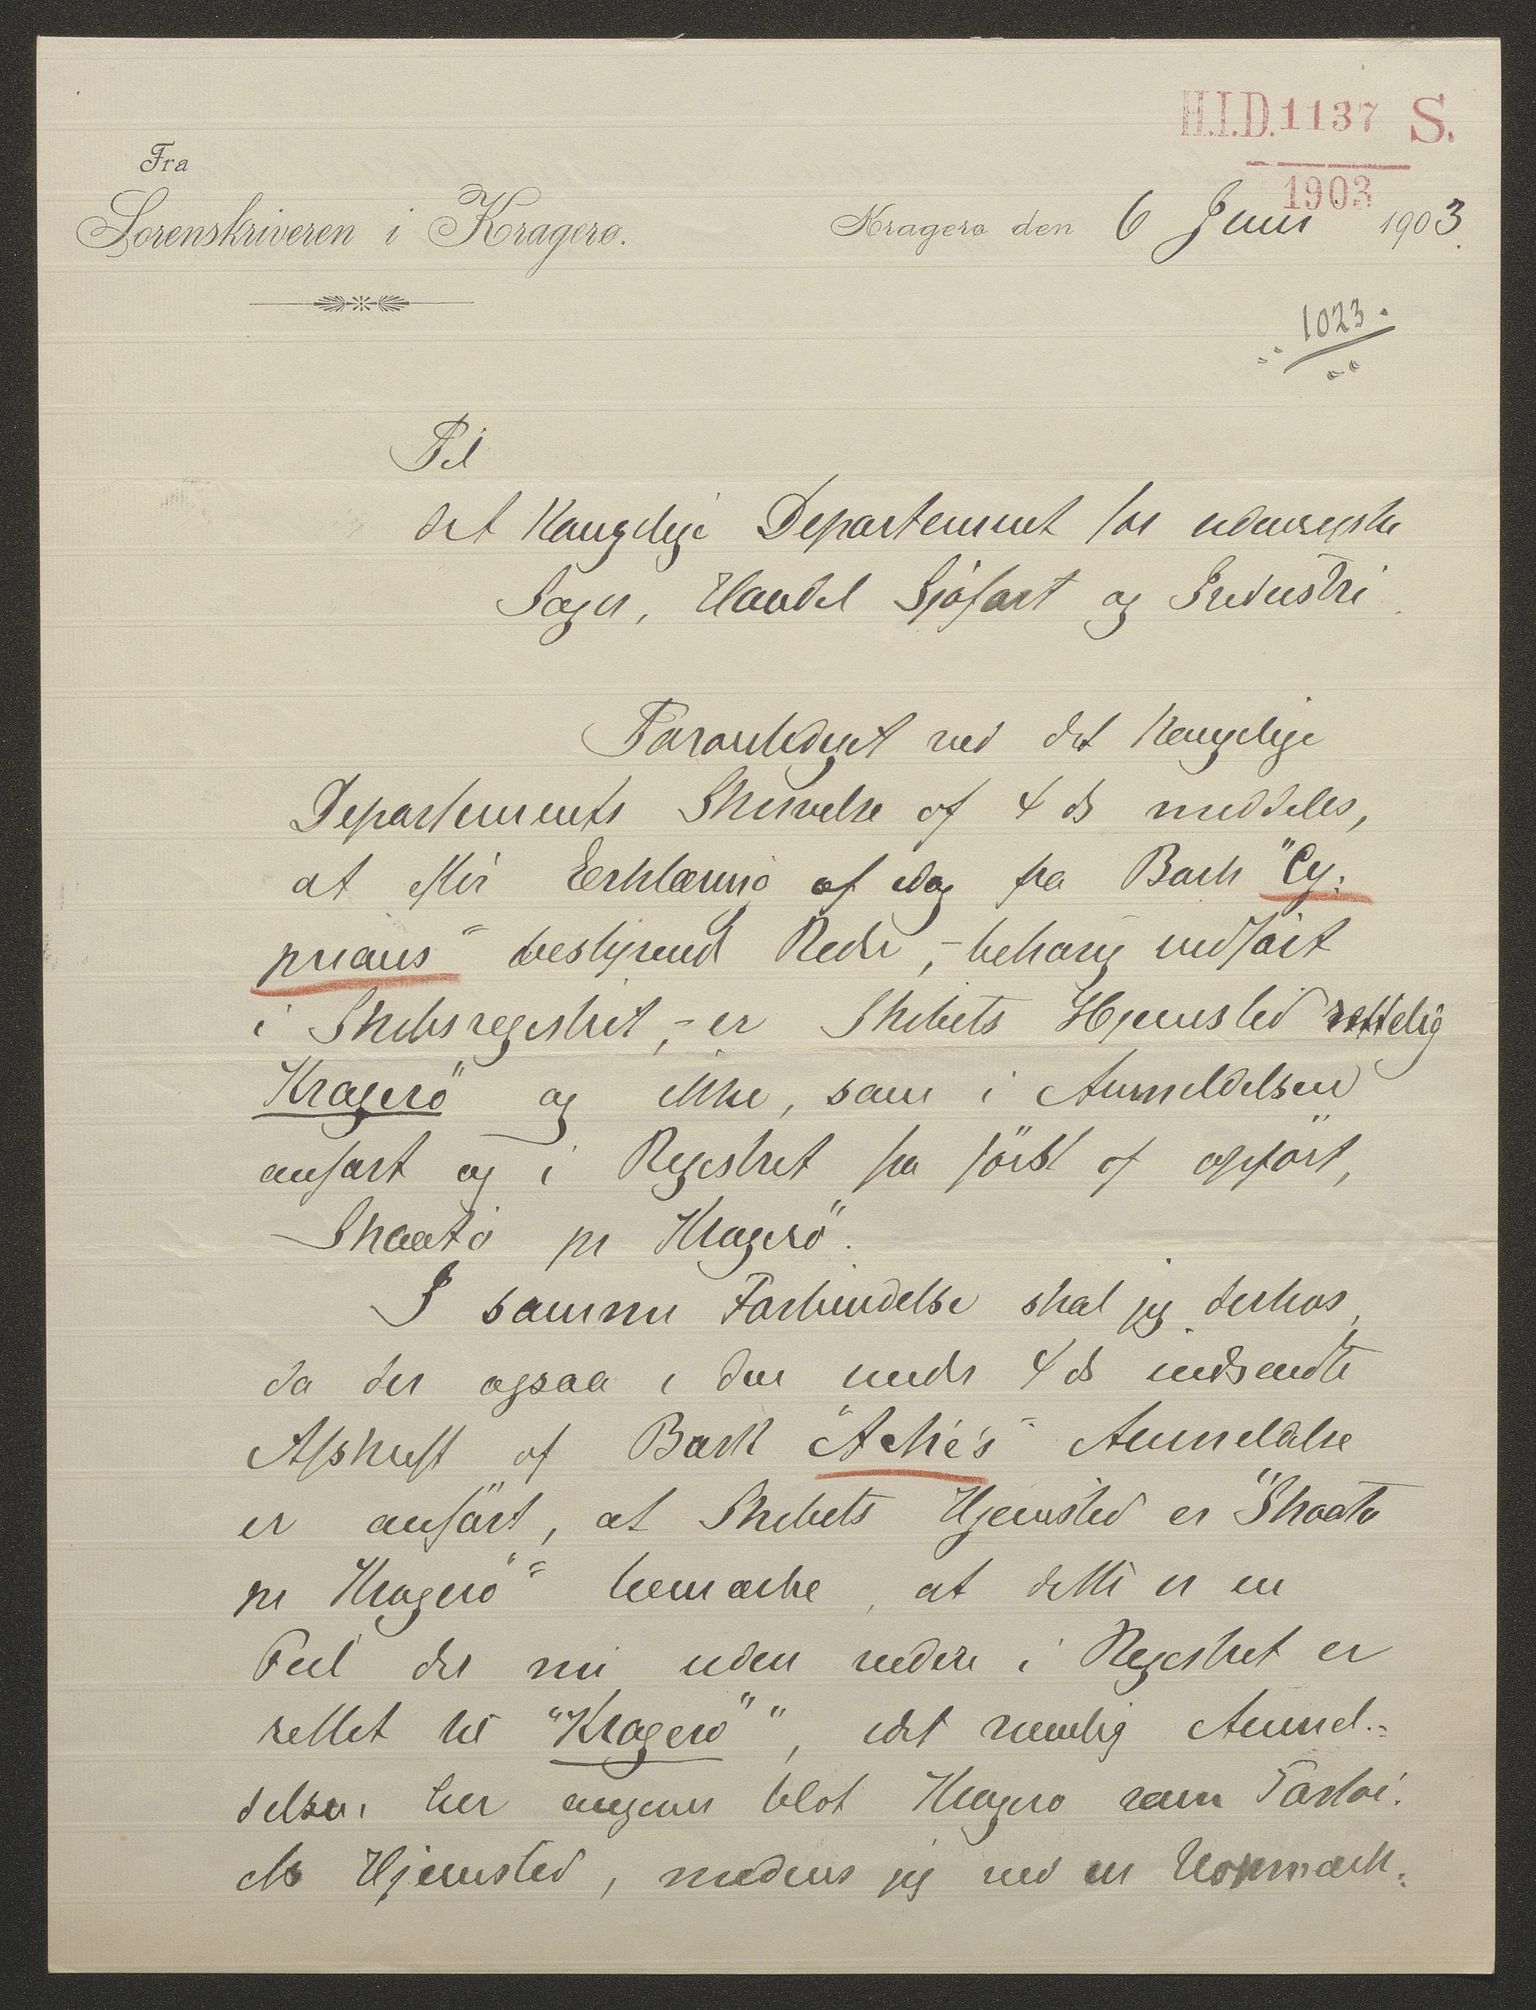 H.I.D. 1137 S.
1903
Fra
Sorenskriveren i Kragerø.
Kragerø den 6 Juni 1903.
1023.
Til
det Kongelige Departement for udenrigske
Sager, Handel Sjøfart og Industri.
Foranlediget ved det Kongelige
Departements Skrivelse af 4 ds meddeles,
at efter Erklæring af idag fra Bark "Cy-
prians" bestyrende Reder, - behørig indført
i Skibsregistret, - er Skibets Hjemsted rettelig
Kragerö" og ikke, som i Anmeldelsen
anført og i Registret fra först af opfört,
Skaatø pr Kragerö".
I samme Forbindelse skal jeg derhos,
da der ogsaa i den under 4 ds indsendte
Afskrift af Bark "Aktie's" Anmeldelse
er anført, at Skibets Hjemsted er "Skaatø
pr Kragerö" bemærke, at dette er en
Feil der nu uden videre i Registret er
rettet til "Kragerö", idet nemlig Anmel-
delsen her angiver blot Kragerø som Fartøi-
ets Hjemsted, medens jeg ved en Uopmærk-